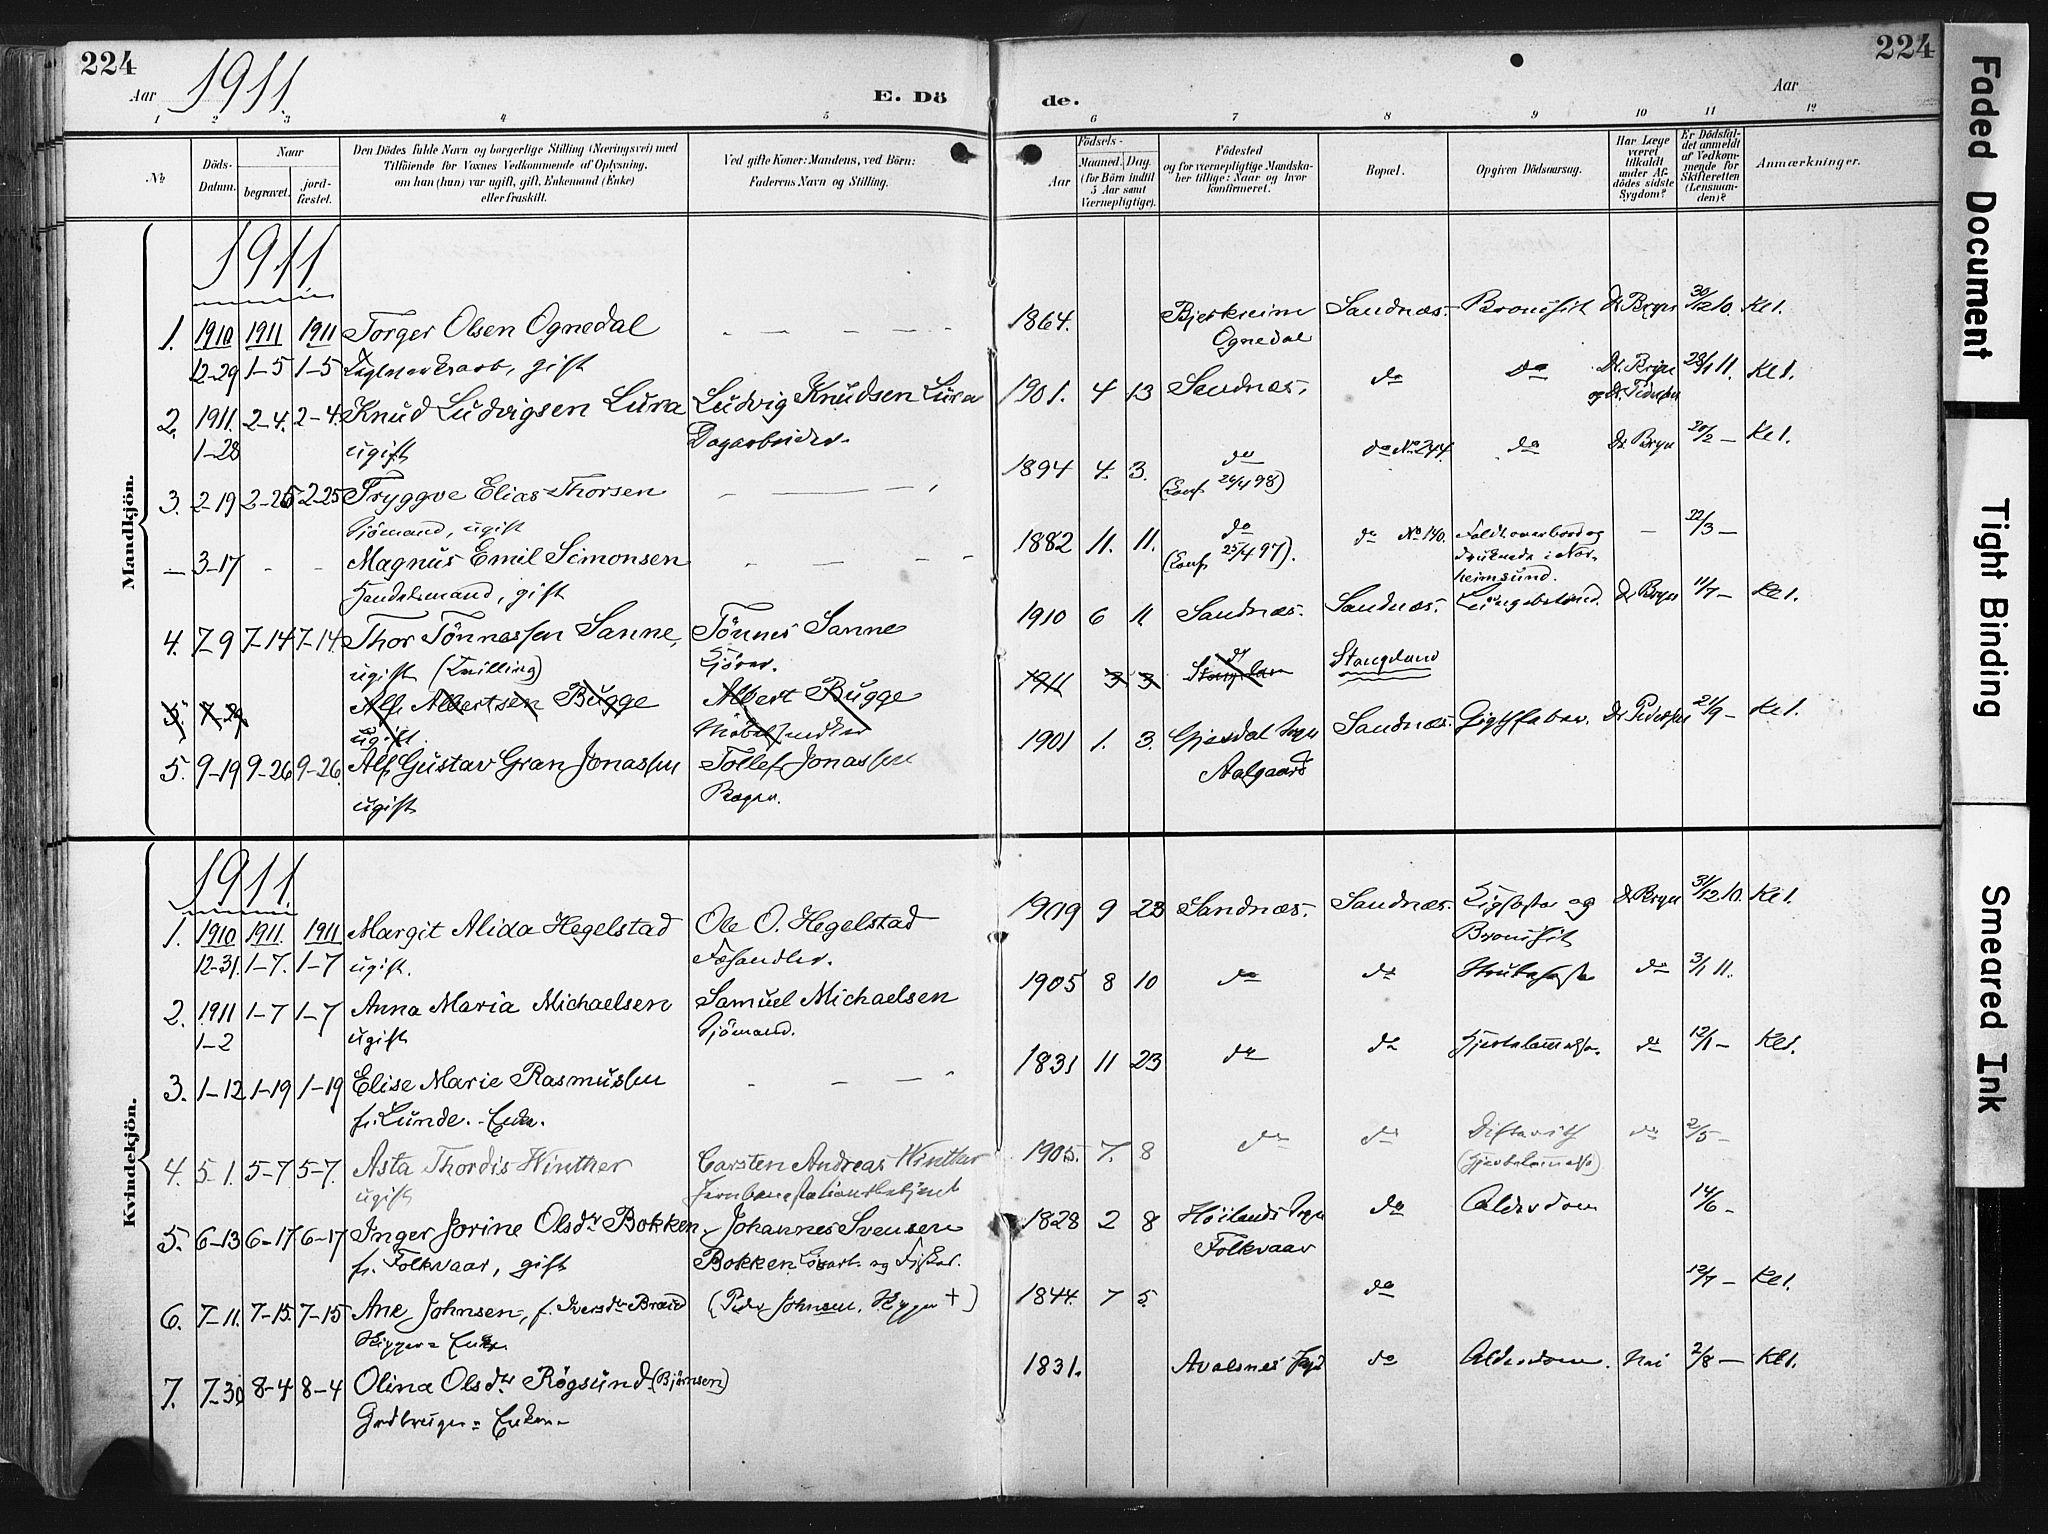 224
Aar 1911.
E. Dö
1 2 3 4 5
№
Döds-Datum.
Naar
begravet. jord-fæstet.
Den Dödes fulde Navn og borgerlige Stilling (Næringsvei) med
Tilföiende for Voxnes Vedkommende af Oplysning,
om han (hun) var ugift, gift, Enkemand (Enke)
eller fraskilt.
Ved gifte Koner: Mandens, ved Börn:
Faderens Navn og Stilling.
Mandkjön.
1911
1. 1910 1911 1911 Torger Olsen Ognedal
12-29 1-5 1-5 gift
2. 1911. 2-4. 2-4. Knud Ludvigsen Lura Ludvig Knudsen Lura
1-28 ugift Dagarbeider
3. 2-19 2-25 2-25 Tryggve Elias Thorsen
Sjömand, ugift
3-17 Magnus Emil Simonsen
Handelsmand, gift
4. 7-9 7-14 7-14. Thor Tönnessen Sanne, Tönnes Sanne
ugift (Tvilling)
5. Alf Albertsen Bugge Albert Bugge
ugift. Möbelhandler
5. 9-19 9-26 9-26. Alf Gustav Gran Jonassen Tollef Jonassen
ugift
Kvindekjön.
1911
1. 1910 1911. 1911 Margit Alida Hegelstad Ole O. Hegelstad
12-31. 1-7. 1-7 ugift.
2. 1911 1-7 1-7 Anna Maria Michaelsen Samuel Michaelsen
1-2 ugift Sjömand.
3. 1-12 1-19 1-19 Elise Marie Rasmussen
f. Lunde. Enke.
4. 5-1. 5-7 5-7. Asta Thordis Winther Carsten Andreas Winther
ugift Jernbanestationsbetjent
5. 6-13 6-17 6-17 Inger Jorine Olsdtr Bokken Johannes Svensen
f. Folkvaar, gift Bokken og Fisker.
6. 7-11. 7-15. 7-15 Ane Johnsen, f. Iversdtr (Peder Johnsen, +)
Enke
7. 7-30 8-4 8-4 Olina Olsdtr Røgsund (Bjørnsen)
Grdbruger Enke
224
de.
Aar
6 7 8 9 10 11 12
Födsels-
Aar Maaned. Dag.
(for Börn indtil
5 Aar samt
Værnepligtige).
Födested
og for værnepligtige Mandska-
ber tillige: Naar og hvor
konfirmeret.
Bopæl.
Opgiven Dödsaarsag.
Har Læge
været
tilkaldt
under Af-
dödes sidste
Sygdom?
Er Dödsfal-
det anmeldt
af Vedkom-
mende for
Skifteretten
(Lensman-
den)?
Anmærkninger.
1864. Bjerkreim Sandnæs. Bronchit Dr Bryn 30/12 10. Kl 1.
Ognedal
1901. 4 13 Sandnæs. do do Dr. Bryn 28/1 11. Kl 1.
og Dr. Pedersen
1894 4. 3. do do No 244. do Dr Bryn 20/2 — Kl 1.
(Conf 24/4 98)
1882 11. 11. do do No 140. Faldt overbord og — 22/3 —
(Conf 25/4 97). druknede i Nor-
heimsund.
1910 6 11. Sandnæs. Sandnæs. Lungebetænd. Dr Bryn 11/7 — Kl 1.
1911 3 3 Stangeland
1901 1. 3. Gjesdal Sogn Sandnæs. Gigtfeber. Dr Pedersen 21/9 — Kl 1.
Aalgaard
1909 9 23 Sandnæs. Sandnæs. og Dr Bryn 31/12 10. Kl 1.
Bronchit
1905 8 10 do do Strubehoste do 3/1 11.
1831 11 23 do do Hjertelammelse do 12/1 — Kl 1.
1905. 7. 8 do do Difterith do 2/5 —
(Hjertelammelse)
1828 2 8 Höilands Sogn do Alderdom 14/6 —
Folkvaar
1844. 7 5. do 12/7 — Kl 1.
1831. Avalsnes do Alderdom. Nei 2/8 — Kl 1.
Faded Document
Tight Binding
Smeared Ink